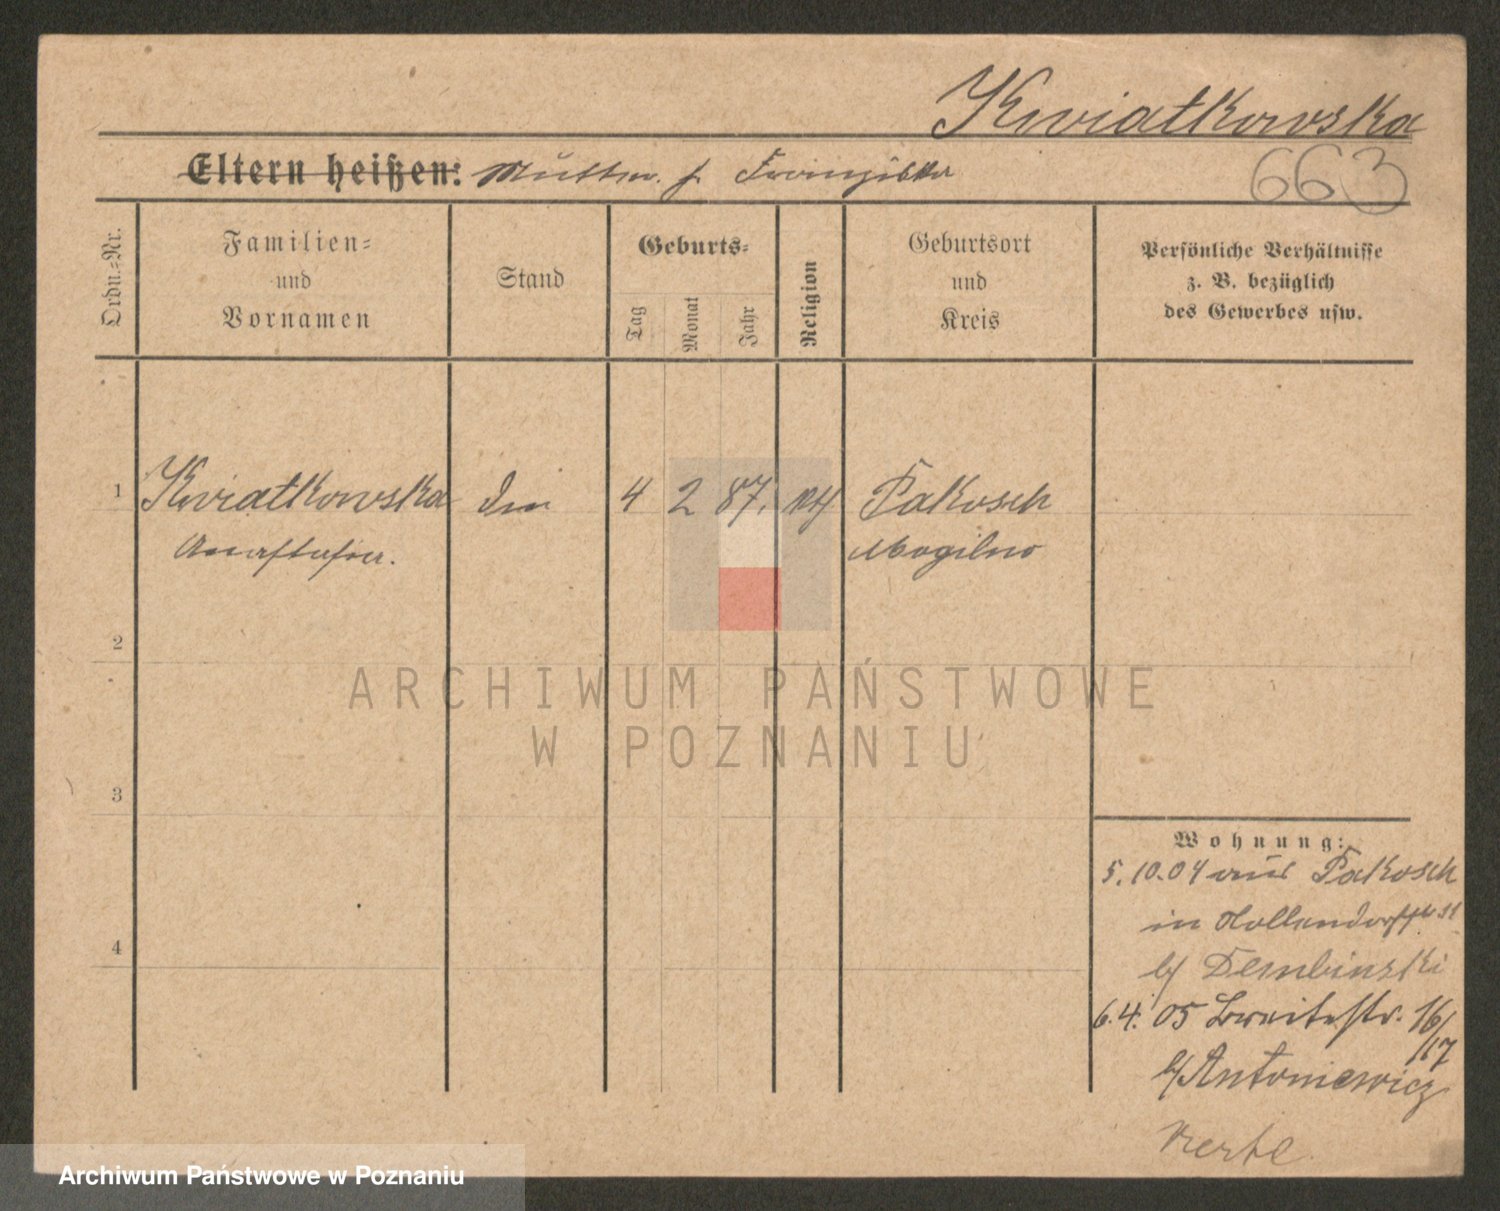 Kwiatkowska
663
Eltern heißen: Mutter: f. Franziska
Ordn.=Nr.
Familien=
und
Vornamen
Stand
Geburts=
Tag
Monat
Jahr
Religion
Geburtsort
und
Kreis
Persönliche Verhältnisse
z. B. bezüglich
des Gewerbes usw.
1 Kwiatkowska 4 2 87. kth Pakosch
Anastasia. Mogilno
2
3
4
Wohnung:
5.10.04 aus Pakosch
in
b/ Dembinski
6.4.05 Breitestr. 16/
17
b/ Antoniewicz
ARCHIWUM PAŃSTWOWE
W POZNANIU
Archiwum Państwowe w Poznaniu